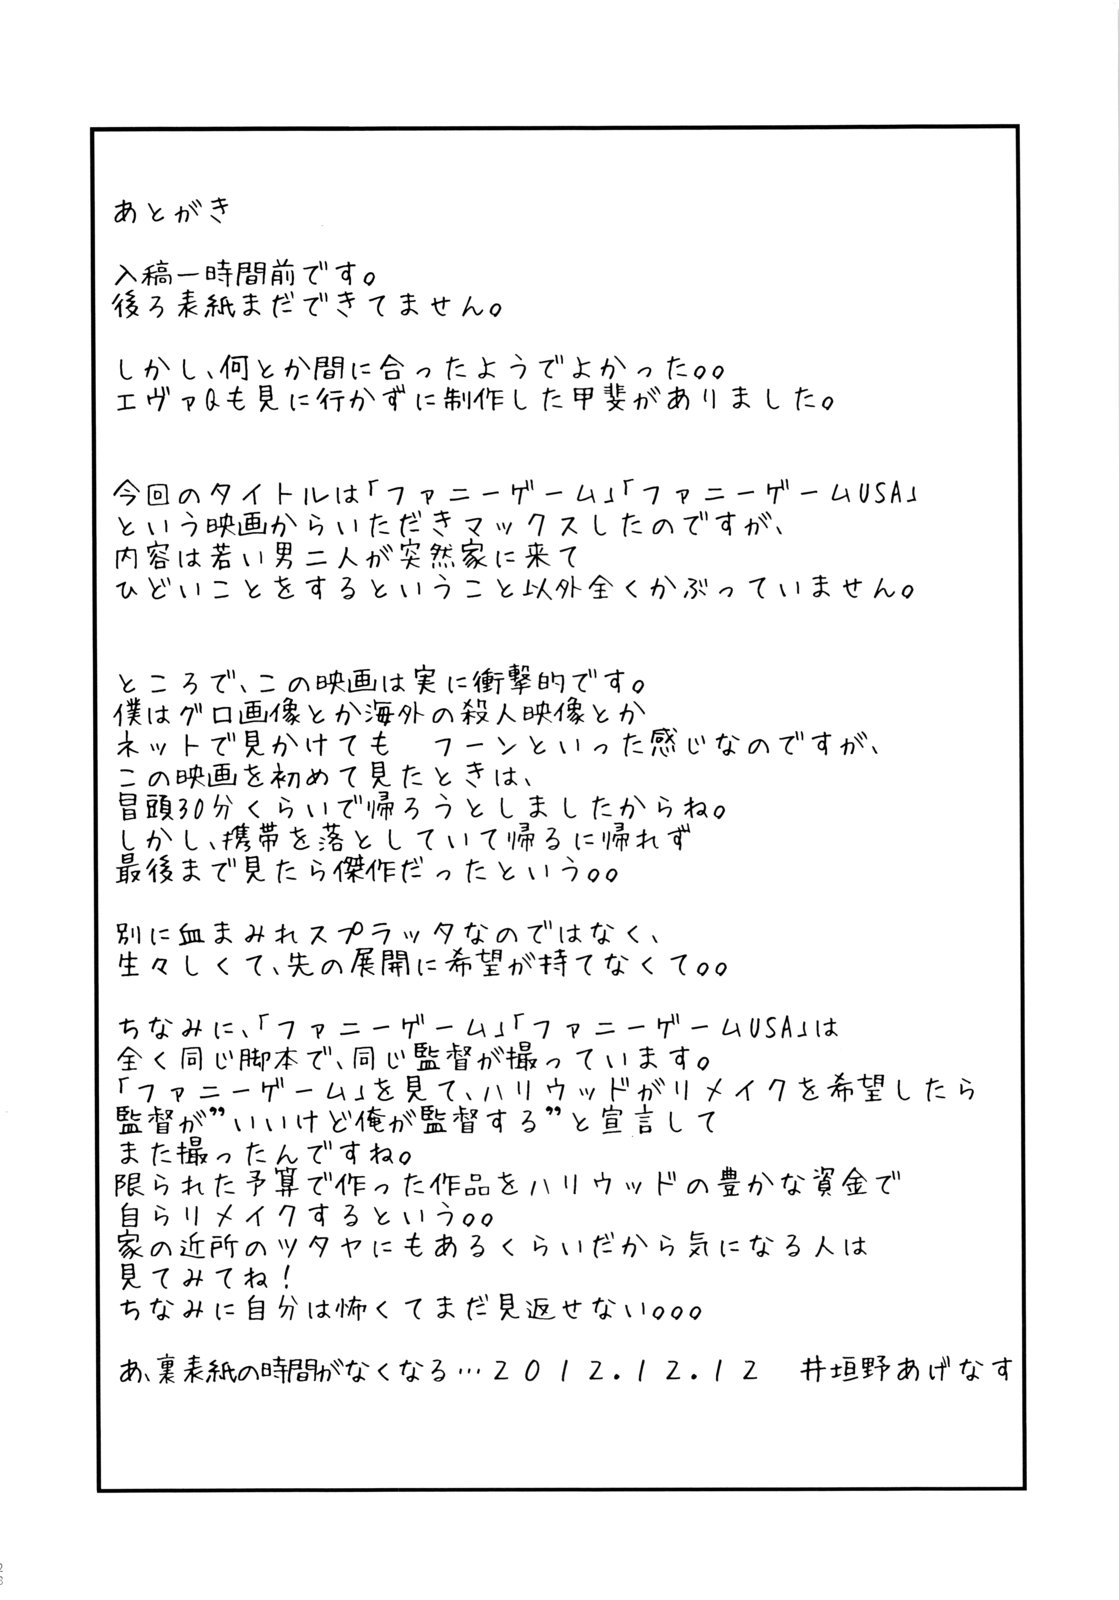 あとがき
入稿一時間前です。
後ろ表紙まだできてません。
しかし、何とか間に合ったようでよかった。。
エヴァQも見に行かずに制作した甲斐がありました。
今回のタイトルは「ファニーゲーム」「ファニーゲームUSA」
という映画からいただきマックスしたのですが、
内容は若い男二人が突然家に来て
ひどいことをするということ以外全くかぶっていません。
ところで、この映画は実に衝撃的です。
僕はグロ画像とか海外の殺人映像とか
ネットで見かけても　フーンといった感じなのですが、
この映画を初めて見たときは、
冒頭30分くらいで帰ろうとしましたからね。
しかし、携帯を落としていて帰るに帰れず
最後まで見たら傑作だったという。。
別に血まみれスプラッタなのではなく、
生々しくて、先の展開に希望が持てなくて。。
ちなみに、「ファニーゲーム」「ファニーゲームUSA」は
全く同じ脚本で、同じ監督が撮っています。
「ファニーゲーム」を見て、ハリウッドがリメイクを希望したら
監督が”いいけど俺が監督する”と宣言して
また撮ったんですね。
限られた予算で作った作品をハリウッドの豊かな資金で
自らリメイクするという。。
家の近所のツタヤにもあるくらいだから気になる人は
見てみてね!
ちなみに自分は怖くてまだ見返せない。。。
あ、裏表紙の時間がなくなる…2012.12.12　井垣野あげなす